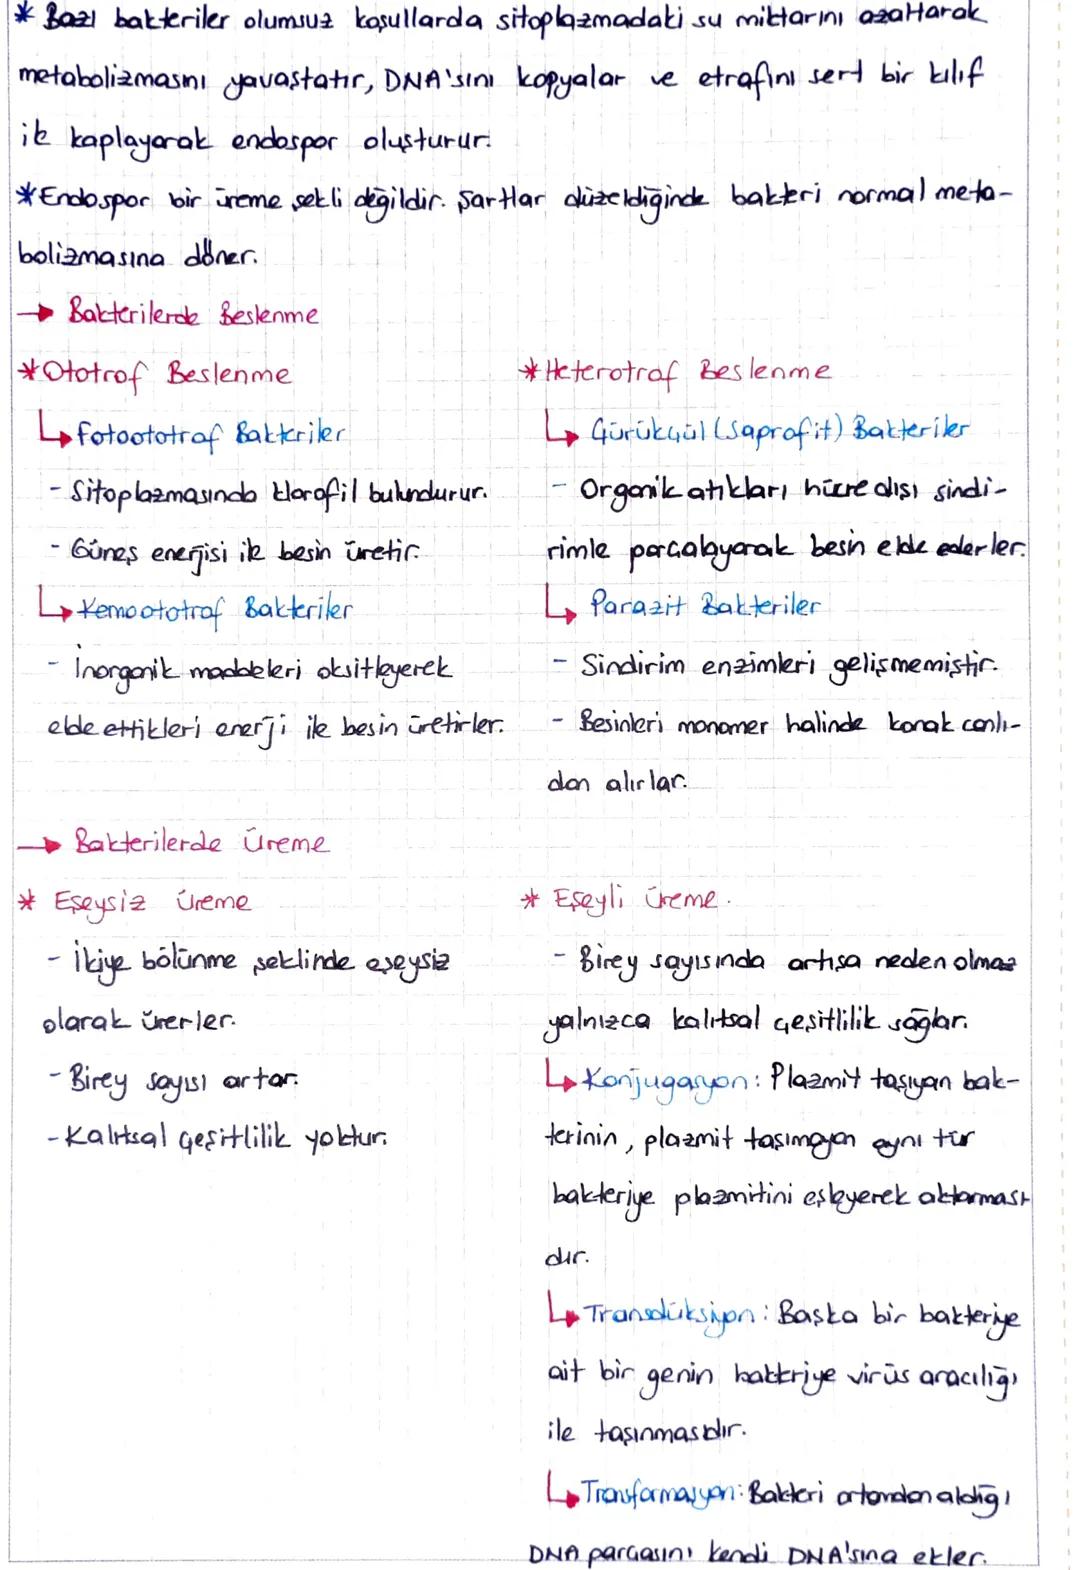 * Bazı bakteriler olumsuz koşullarda sitoplazmadaki su miktarını azaltarak
metabolizmasını yavaşlatır, DNA'sını kopyalar ve etrafını sert bir kılıf
ile kaplayarak endospor oluşturur.
*Endospor bir üreme şekli değildir. Şartlar düzeldiğinde bakteri normal meta-
bolizmasına döner.
→ Bakterilerde Beslenme
*Ototrof Beslenme
↳ Fotoototrof Bakteriler
- Sitoplazmasında klorofil bulundurur.
- Güneş enerjisi ile besin üretir.
↳ Kemoototrof Bakteriler
- İnorganik maddeleri oksitleyerek
elde ettikleri enerji ile besin üretirler.
*Heterotrof Beslenme
↳ Çürükçül (Saprofit) Bakteriler
- Organik atıkları hücre dışı sindi-
rimle parçalayarak besin elde ederler.
↳ Parazit Bakteriler
- Sindirim enzimleri gelişmemiştir.
- Besinleri monomer halinde konak canlı-
dan alırlar.
→ Bakterilerde Üreme
* Eşeysiz Üreme
- İkiye bölünme şeklinde eşeysiz
olarak ürerler.
- Birey sayısı artar.
- Kalıtsal çeşitlilik yoktur.
* Eşeyli Üreme.
- Birey sayısında artışa neden olmaz
yalnızca kalıtsal çeşitlilik sağlar.
↳ Konjugasyon: Plazmit taşıyan bak-
terinin, plazmit taşımayan aynı tür
bakteriye plazmitini eşleyerek aktarması
dır.
↳ Transdüksiyon: Başka bir bakteriye
ait bir genin bakteriye virüs aracılığı
ile taşınmasıdır.
↳ Transformasyon: Bakteri ortamdan aldığı
DNA parçasını kendi DNA'sına ekler.